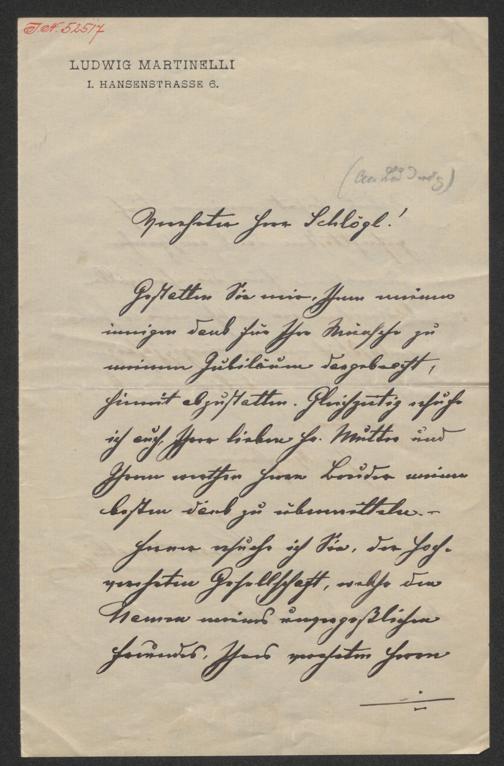 J.N. 52517
LUDWIG MARTINELLI
I. HANSENSTRASSE 6.
Verehrter Herr Schlögl!
Gestatten Sie mir, Ihnen meinen
innigen Dank für Ihre Wünsche zu
meinem Jubiläum dargebracht,
hiemit abzustatten. Gleichzeitig ersuche
ich auch, Ihrer lieben Fr. Mutter und
Ihrem werthen Herrn Bruder meinen
besten Dank zu übermitteln. –
Ferner ersuche ich Sie, der hoch-
verehrten Gesellschaft, welche den
Namen meines unvergeßlichen
Freundes, Ihres verehrten Herrn